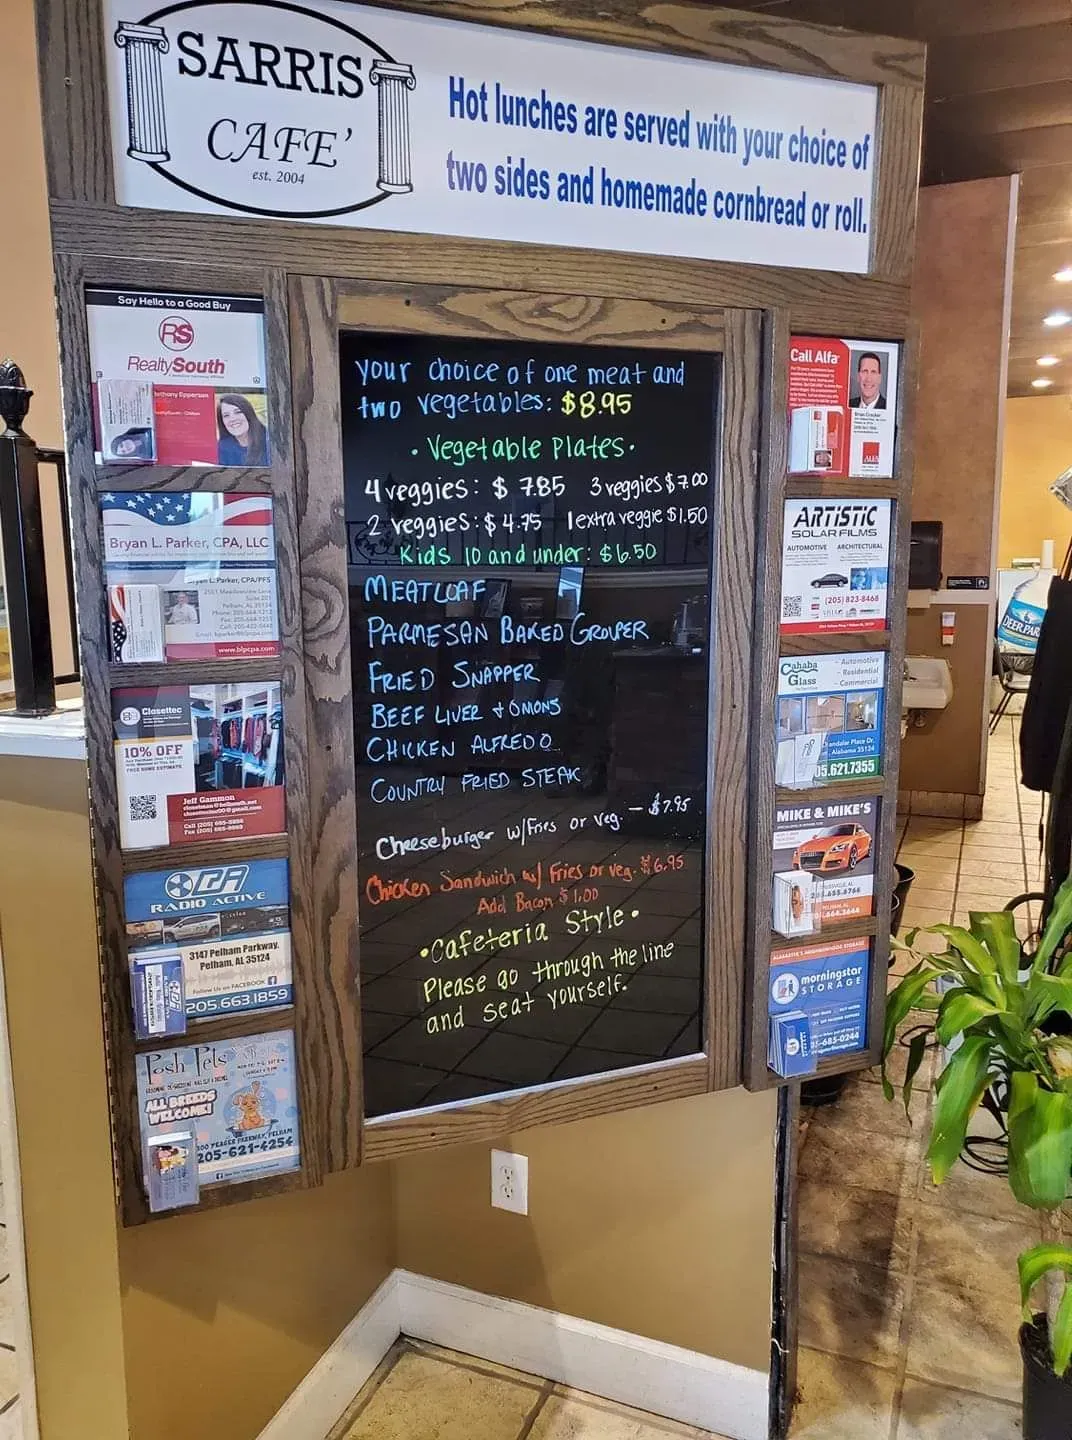 SARRIS
CAFE'
est. 2004
Hot lunches are served with your choice of
two sides and homemade cornbread or roll.
Say Hello to a Good Buy
RS
RealtySouth
Bryan L. Parker, CPA, LLC
Bryan L. Parker, CPA/PFS
Pelham, AL 35124
www.blpcpa.com
Closettec
10% OFF
FREE HOME ESTIMATE
Jeff Gammon
RADIO ACTIVE
3147 Pelham Parkway.
Pelham, AL 35124
Follow Us on FACEBOOK
205.663.1859
Posh Pets
ALL BREEDS
WELCOME!
205-621-4254
your choice of one meat and
two vegetables: $8.95
• Vegetable Plates •
4 veggies: $ 7.85 3 veggies $7.00
2 veggies: $4.75 1 extra veggie $1.50
Kids 10 and under: $6.50
MEATLOAF
PARMESAN BAKED GROUPER
FRIED SNAPPER
BEEF LIVER + ONIONS
CHICKEN ALFREDO
COUNTRY FRIED STEAK
Cheeseburger w/Fries or veg. - $7.95
Chicken Sandwich w/ Fries or veg. $6.95
Add Bacon $1.00
• Cafeteria Style •
Please go through the line
and seat yourself.
Call Alfa
ARTISTIC
SOLAR FILMS
AUTOMOTIVE ARCHITECTURAL
(205) 823-8468
Cahaba
Glass
- Automotive
- Residential
- Commercial
Alabama 35124
05.621.7355
MIKE & MIKE'S
morningstar
STORAGE
685-0244
DEER PAR